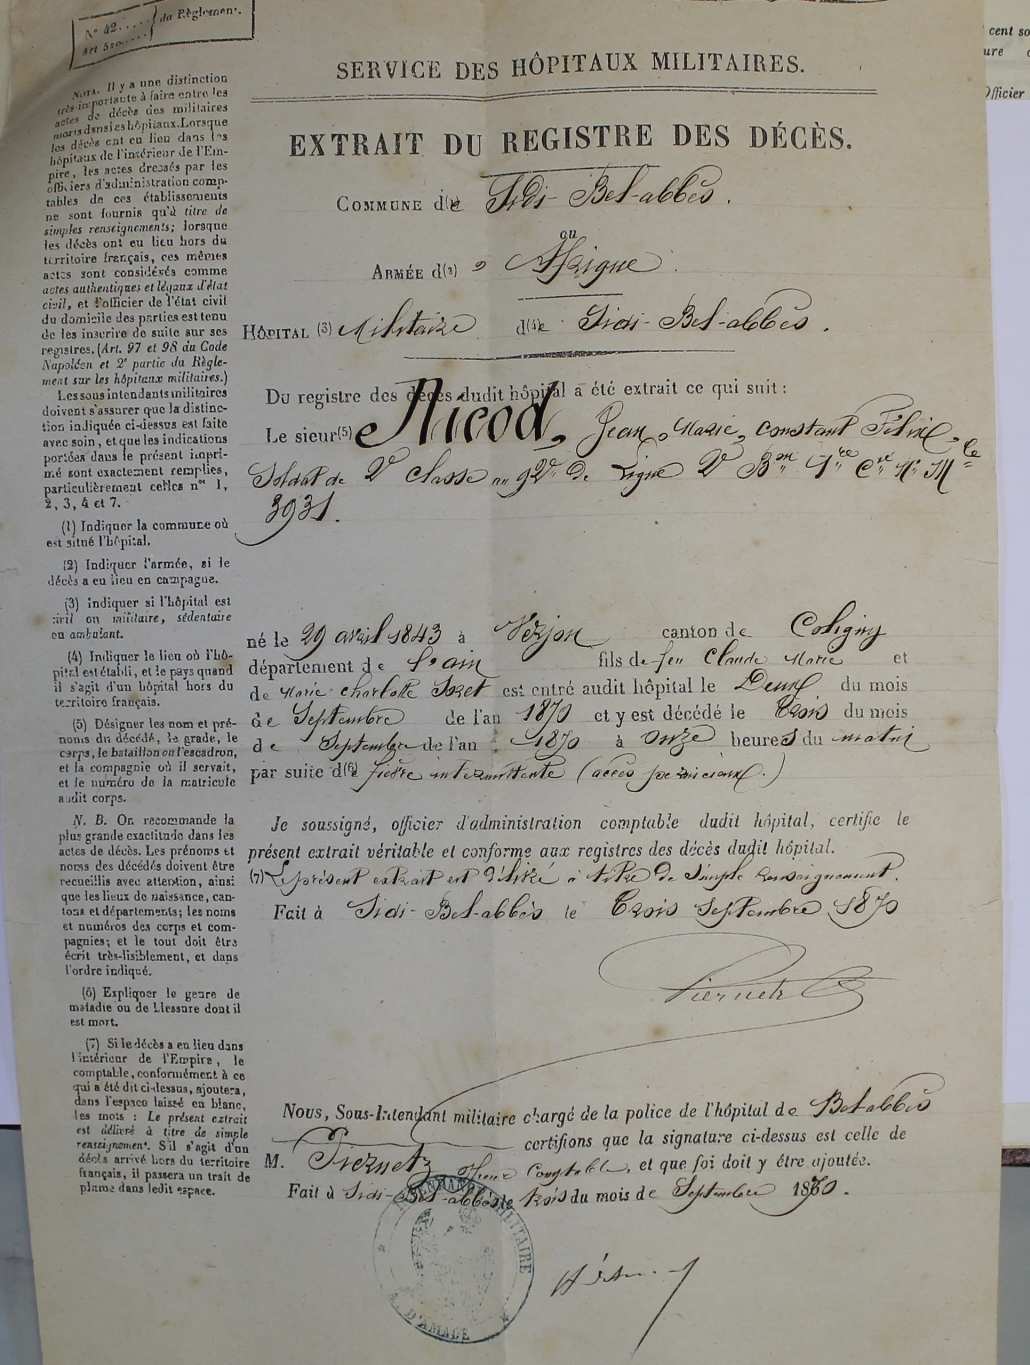 N° 42.....
Art 500.....
du Règlement.
cent so
ure
Officier
SERVICE DES HÔPITAUX MILITAIRES.
EXTRAIT DU REGISTRE DES DÉCÈS.
COMMUNE d(1)e Sidi-Bel-abbès.
ou
ARMÉE d(2) » Afrique
HÔPITAL (3) Militaire d(4)e Sidi-Bel-abbès.
Du registre des décès dudit hôpital a été extrait ce qui suit :
Le sieur(5) Nicod, Jean, Marie, constant Félix,
Soldat de 2e classe au 92e de Ligne 2e Bon 1re Cie No Mle
3931.
né le 29 avril 1843 à Verjon canton de Coligny
département de l'ain fils de feu Claude Marie et
de Marie charlotte Joret est entré audit hôpital le Deux du mois
de Septembre de l'an 1870 et y est décédé le Trois du mois
de Septembre de l'an 1870 à onze heures du matin
par suite d(6)e fièvre intermittente (accès pernicieux.)
Je soussigné, officier d'administration comptable dudit hôpital, certifie le
présent extrait véritable et conforme aux registres des décès dudit hôpital.
(7) Le présent extrait est délivré à titre de simple renseignement.
Fait à Sidi-Bel-abbès le Trois Septembre 1870
Piernetz
Nous, Sous-Intendant militaire chargé de la police de l'hôpital de Bel-abbès
certifions que la signature ci-dessus est celle de
M. Piernetz Comptable, et que foi doit y être ajoutée.
Fait à Sidi-Bel-abbès le trois du mois de Septembre 1870.
INTENDANCE MILITAIRE
NOTA. Il y a une distinction
très-importante à faire entre les
actes de décès des militaires
morts dans les hôpitaux. Lorsque
les décès ont eu lieu dans les
hôpitaux de l'intérieur de l'Em-
pire, les actes dressés par les
officiers d'administration comp-
tables de ces établissements
ne sont fournis qu'à titre de
simples renseignements; lorsque
les décès ont eu lieu hors du
territoire français, ces mêmes
actes sont considérés comme
actes authentiques et légaux d'état
civil, et l'officier de l'état civil
du domicile des parties est tenu
de les inscrire de suite sur ses
registres. (Art. 97 et 98 du Code
Napoléon et 2e partie du Règle-
ment sur les hôpitaux militaires.)
Les sous intendants militaires
doivent s'assurer que la distinc-
tion indiquée ci-dessus est faite
avec soin, et que les indications
portées dans le présent impri-
mé sont exactement remplies,
particulièrement celles nos 1,
2, 3, 4 et 7.
(1) Indiquer la commune où
est situé l'hôpital.
(2) Indiquer l'armée, si le
décès a eu lieu en campagne.
(3) Indiquer si l'hôpital est
civil ou militaire, sédentaire
ou ambulant.
(4) Indiquer le lieu où l'hô-
pital est établi, et le pays quand
il s'agit d'un hôpital hors du
territoire français.
(5) Désigner les nom et pré-
noms du décédé, le grade, le
corps, le bataillon ou l'escadron,
et la compagnie où il servait,
et le numéro de la matricule
audit corps.
N. B. On recommande la
plus grande exactitude dans les
actes de décès. Les prénoms et
noms des décédés doivent être
recueillis avec attention, ainsi
que les lieux de naissance, can-
tons et départements; les noms
et numéros des corps et com-
pagnies; et le tout doit être
écrit très-lisiblement, et dans
l'ordre indiqué.
(6) Expliquer le genre de
maladie ou de blessure dont il
est mort.
(7) Si le décès a eu lieu dans
l'intérieur de l'Empire, le
comptable, conformément à ce
qui a été dit ci-dessus, ajoutera,
dans l'espace laissé en blanc,
les mots : Le présent extrait
est délivré à titre de simple
renseignement. S'il s'agit d'un
décès arrivé hors du territoire
français, il passera un trait de
plume dans ledit espace.